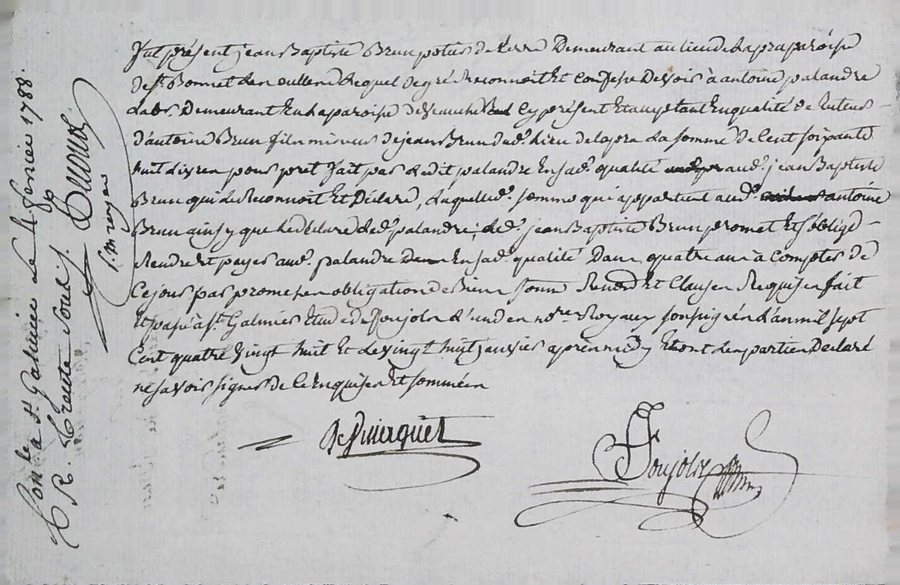 fut présent jean Baptiste Brun potier de terre Demeurant au lieu de la pra paroisse
de st Bonnet Lequel de gré Reconnoit Et Confesse Devoir à antoine palandre
Labr. Demeurant En la paroisse de Veauche cy présent Et acceptant En qualité de Tuteur
d'antoine Brun fils mineur de jean Brun du d. Lieu de la pra La somme de Cent soixante
huit Livres pour pret fait par Le dit palandre En sa d. qualité au d. jean Baptiste
Brun qui Le Reconnoit Et Déclare, Laquelle d. somme qui appartient au d. antoine
Brun ainsy que Le déclare Le d. palandre, Le d. jean Baptiste Brun promet Et s'oblige
Rendre Et payer au d. palandre En sa d. qualité Dans quatre ans à Compter de
Ce jour par promesses obligation de Biens soum. Renon. Et Clauses Requises fait
Et passé à st. Galmier Etude de Poujols L'un des nores. Royaux soussigné L'an mil sept
Cent quatre Vingt huit Et Le vingt huit janvier après midy Et ont Les parties Déclaré
ne savoir signer de Ce Enquises Et sommées
Poujols
Con. à St Galmier Le 10 fevrier 1788.
R. Trente sols